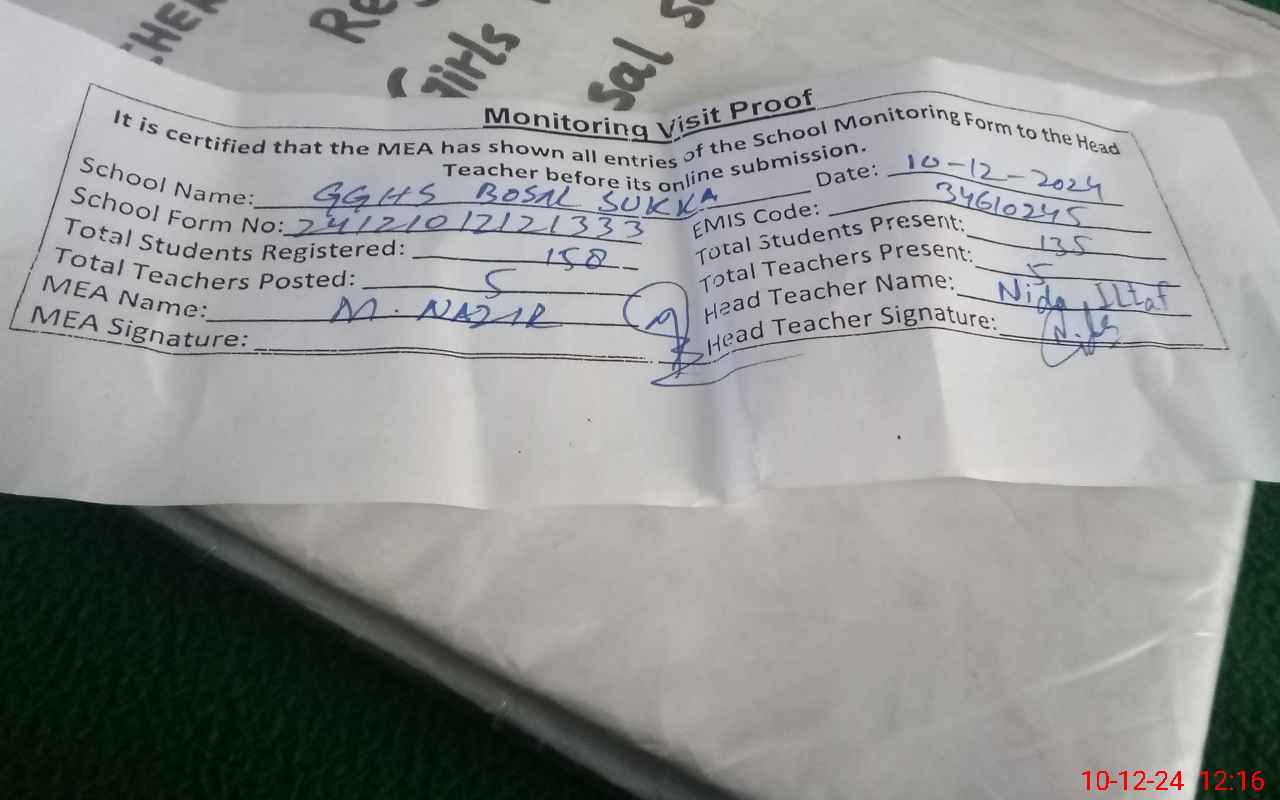 CHER
Re
Girls
sal s
Monitoring Visit Proof
It is certified that the MEA has shown all entries of the School Monitoring Form to the Head
Teacher before its online submission.
School Name: GGHS BOSAL SUKKA Date: 10-12-2024
School Form No: 24121012121333 EMIS Code: 34610245
Total Students Registered: 158 Total Students Present: 135
Total Teachers Posted: 5 Total Teachers Present: 5
MEA Name: M. NAZIR Head Teacher Name: Nida Iltaf
MEA Signature: Head Teacher Signature:
10-12-24 12:16